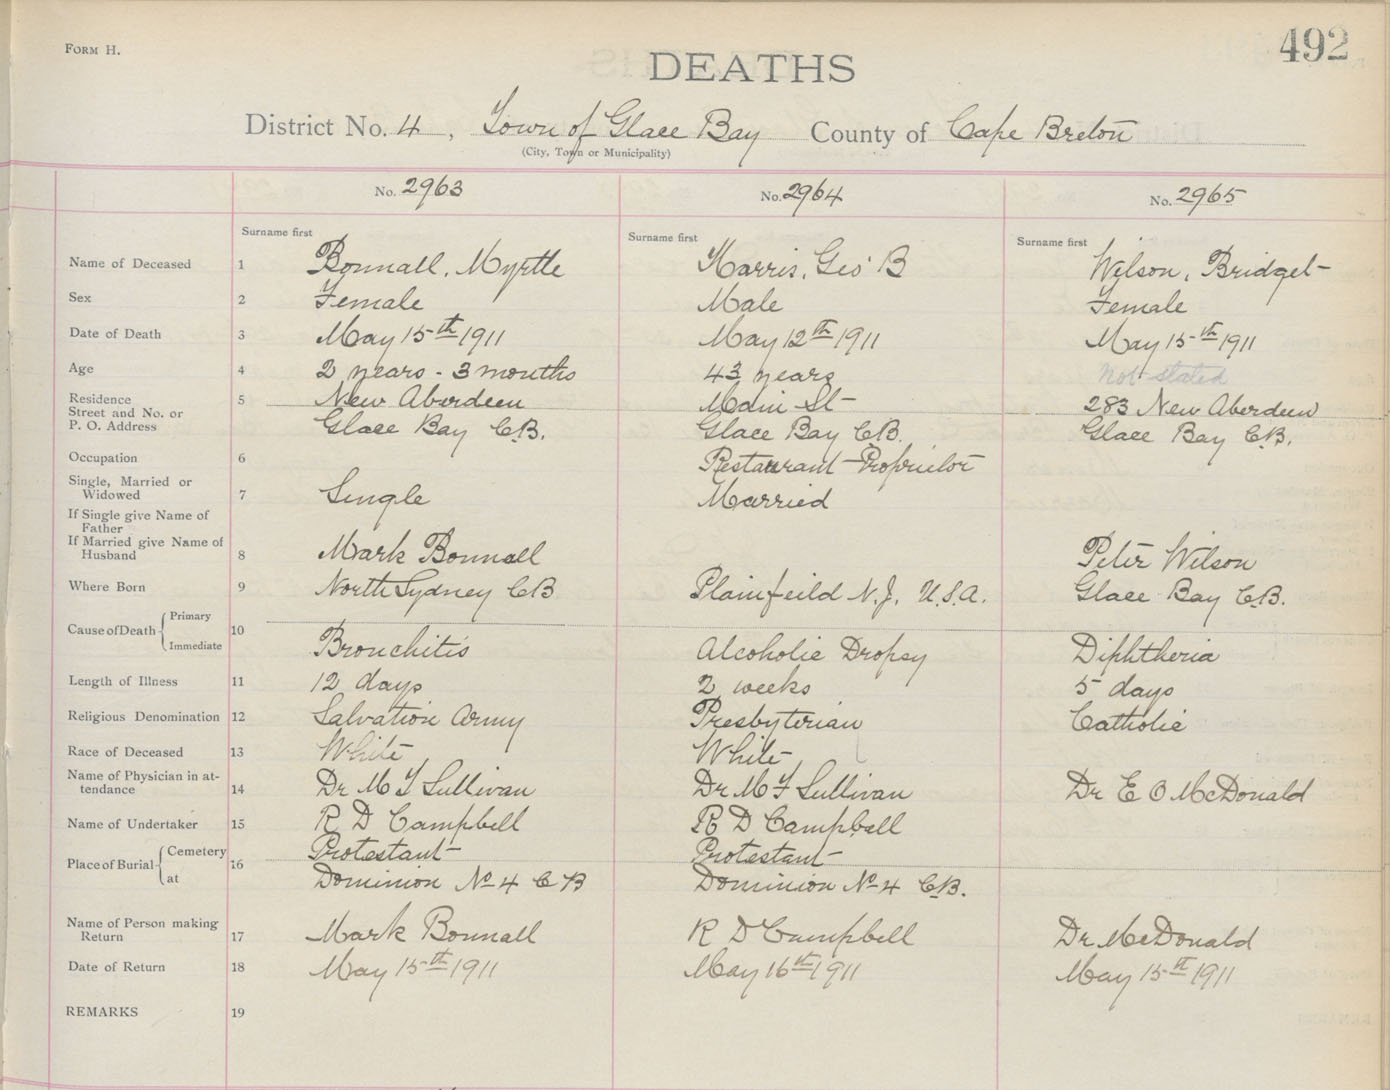 FORM H.
492
DEATHS
District No. 4, Town of Glace Bay County of Cape Breton
(City, Town or Municipality)
No. 2963 No. 2964 No. 2965
Surname first Surname first Surname first
Name of Deceased 1 Bonnall, Myrtle Harris, Geo B Wilson, Bridget
Sex 2 Female Male Female
Date of Death 3 May 15th 1911 May 12th 1911 May 15th 1911
Age 4 2 years - 3 months 43 years Not stated
Residence 5 New Aberdeen Main St 283 New Aberdeen
Street and No. or
P. O. Address Glace Bay C.B. Glace Bay C.B. Glace Bay C.B.
Occupation 6 Restaurant Proprietor
Single, Married or
Widowed 7 Single Married
If Single give Name of
Father
If Married give Name of
Husband 8 Mark Bonnall Peter Wilson
Where Born 9 North Sydney CB Plainfeild N.J. U.S.A. Glace Bay C.B.
Cause of Death Primary
10
Immediate Bronchitis Alcoholic Dropsy Diphtheria
Length of Illness 11 12 days 2 weeks 5 days
Religious Denomination 12 Salvation Army Presbyterian Catholic
Race of Deceased 13 White White
Name of Physician in at-
tendance 14 Dr M T Sullivan Dr M T Sullivan Dr E O McDonald
Name of Undertaker 15 R D Campbell R D Campbell
Place of Burial Cemetery 16 Protestant Protestant
at Dominion No 4 C B Dominion No 4 C.B.
Name of Person making
Return 17 Mark Bonnall R D Campbell Dr McDonald
Date of Return 18 May 15th 1911 May 16th 1911 May 15th 1911
REMARKS 19